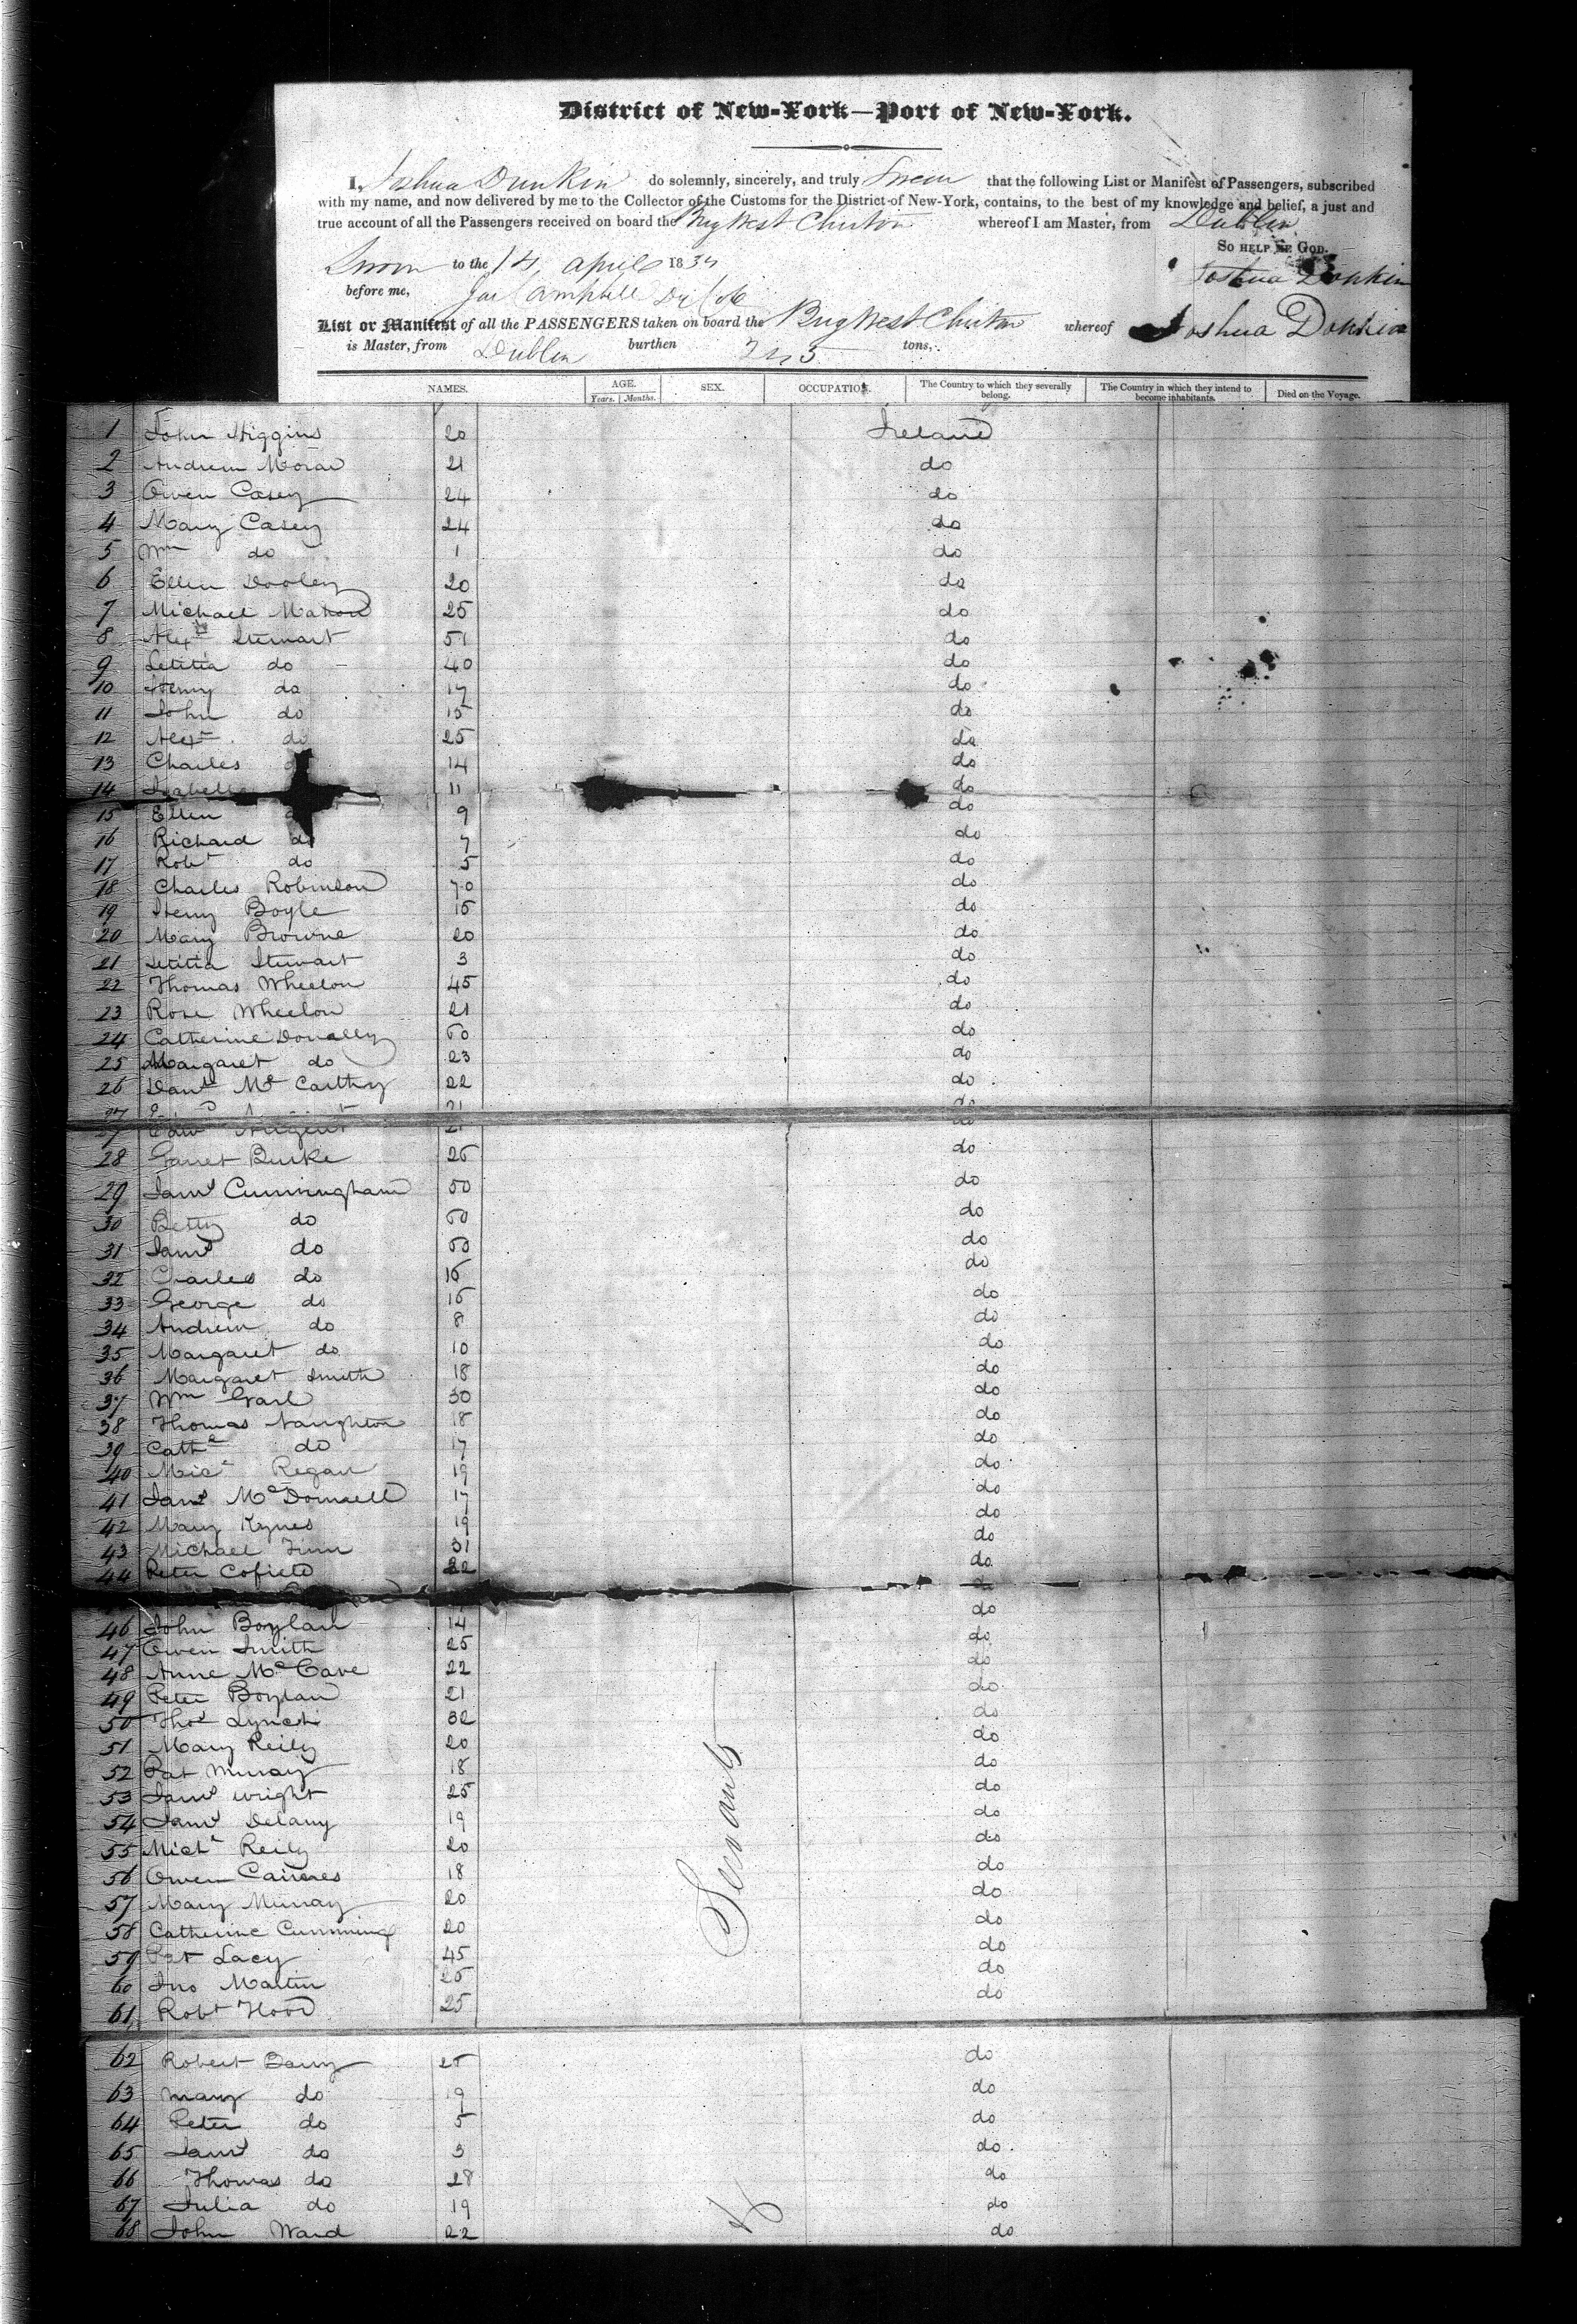 District of New-York—Port of New-York.
I, Joshua Dunkin do solemnly, sincerely, and truly Swear that the following List or Manifest of Passengers, subscribed
with my name, and now delivered by me to the Collector of the Customs for the District of New-York, contains, to the best of my knowledge and belief, a just and
true account of all the Passengers received on board the Brig West whereof I am Master, from Dublin
So HELP ME GOD.
Sworn to the 14 April 183 Joshua
before me, Campbell
List or Manifest of all the PASSENGERS taken on board the Brig West whereof Joshua
is Master, from Dublin burthen tons,
NAMES. AGE. SEX. OCCUPATION. The Country to which they severally belong. The Country in which they intend to become inhabitants. Died on the Voyage.
Years. Months.
1 John Higgins 20 Ireland
2 Andrew Moran 21 do
3 Owen Casey 24 do
4 Mary Casey 24 do
5 Wm do 1 do
6 Ellen Dooley 20 do
7 Michael Mahon 25 do
8 Alexr Stewart 51 do
9 Letitia do 40 do
10 Henry do 17 do
11 John do 15 do
12 Alexr do 25 do
13 Charles do 14 do
14 Isabella 11 do
15 Ellen 9 do
16 Richard do 7 do
17 Robt do 5 do
18 Charles Robinson 70 do
19 Henry Boyle 15 do
20 Mary Browne 20 do
21 Letitia Stewart 3 do
22 Thomas Wheelon 45 do
23 Rose Wheelon 21 do
24 Catherine Donally 50 do
25 Margaret do 23 do
26 Danl Mc Carthy 22 do
27 Edwd Nugent 21 do
28 Garret Burke 25 do
29 Jams Cunningham 50 do
30 Betty do 50 do
31 Jams do 50 do
32 Charles do 15 do
33 George do 15 do
34 Andrew do 8 do
35 Margaret do 10 do
36 Margaret Smith 18 do
37 Wm Garl 30 do
38 Thomas Naughton 18 do
39 Cathe do 17 do
40 Micl Regan 19 do
41 Jams McDonnell 17 do
42 Mary Kynes 19 do
43 Michael Finn 31 do
44 Peter Cofield 22 do
46 John Boylan 14 do
47 Owen Smith 25 do
48 Anne McCave 22 do
49 Peter Boylan 21 do
50 Thos Lynch 32 do
51 Mary Reily 20 do
52 Pat Murray 18 do
53 Jams Wright 25 do
54 Jams Delany 19 do
55 Michl Reily 20 do
56 Owen 18 do
57 Mary Murray 20 do
58 Catherine Cumming 20 do
59 Pat Lacy 45 do
60 Jno Martin 25 do
61 Robt Hood 25 do
Servants
62 Robert Barry 25 do
63 Mary do 19 do
64 Peter do 5 do
65 Jams do 3 do
66 Thomas do 28 do
67 Julia do 19 do
68 John Ward 22 do